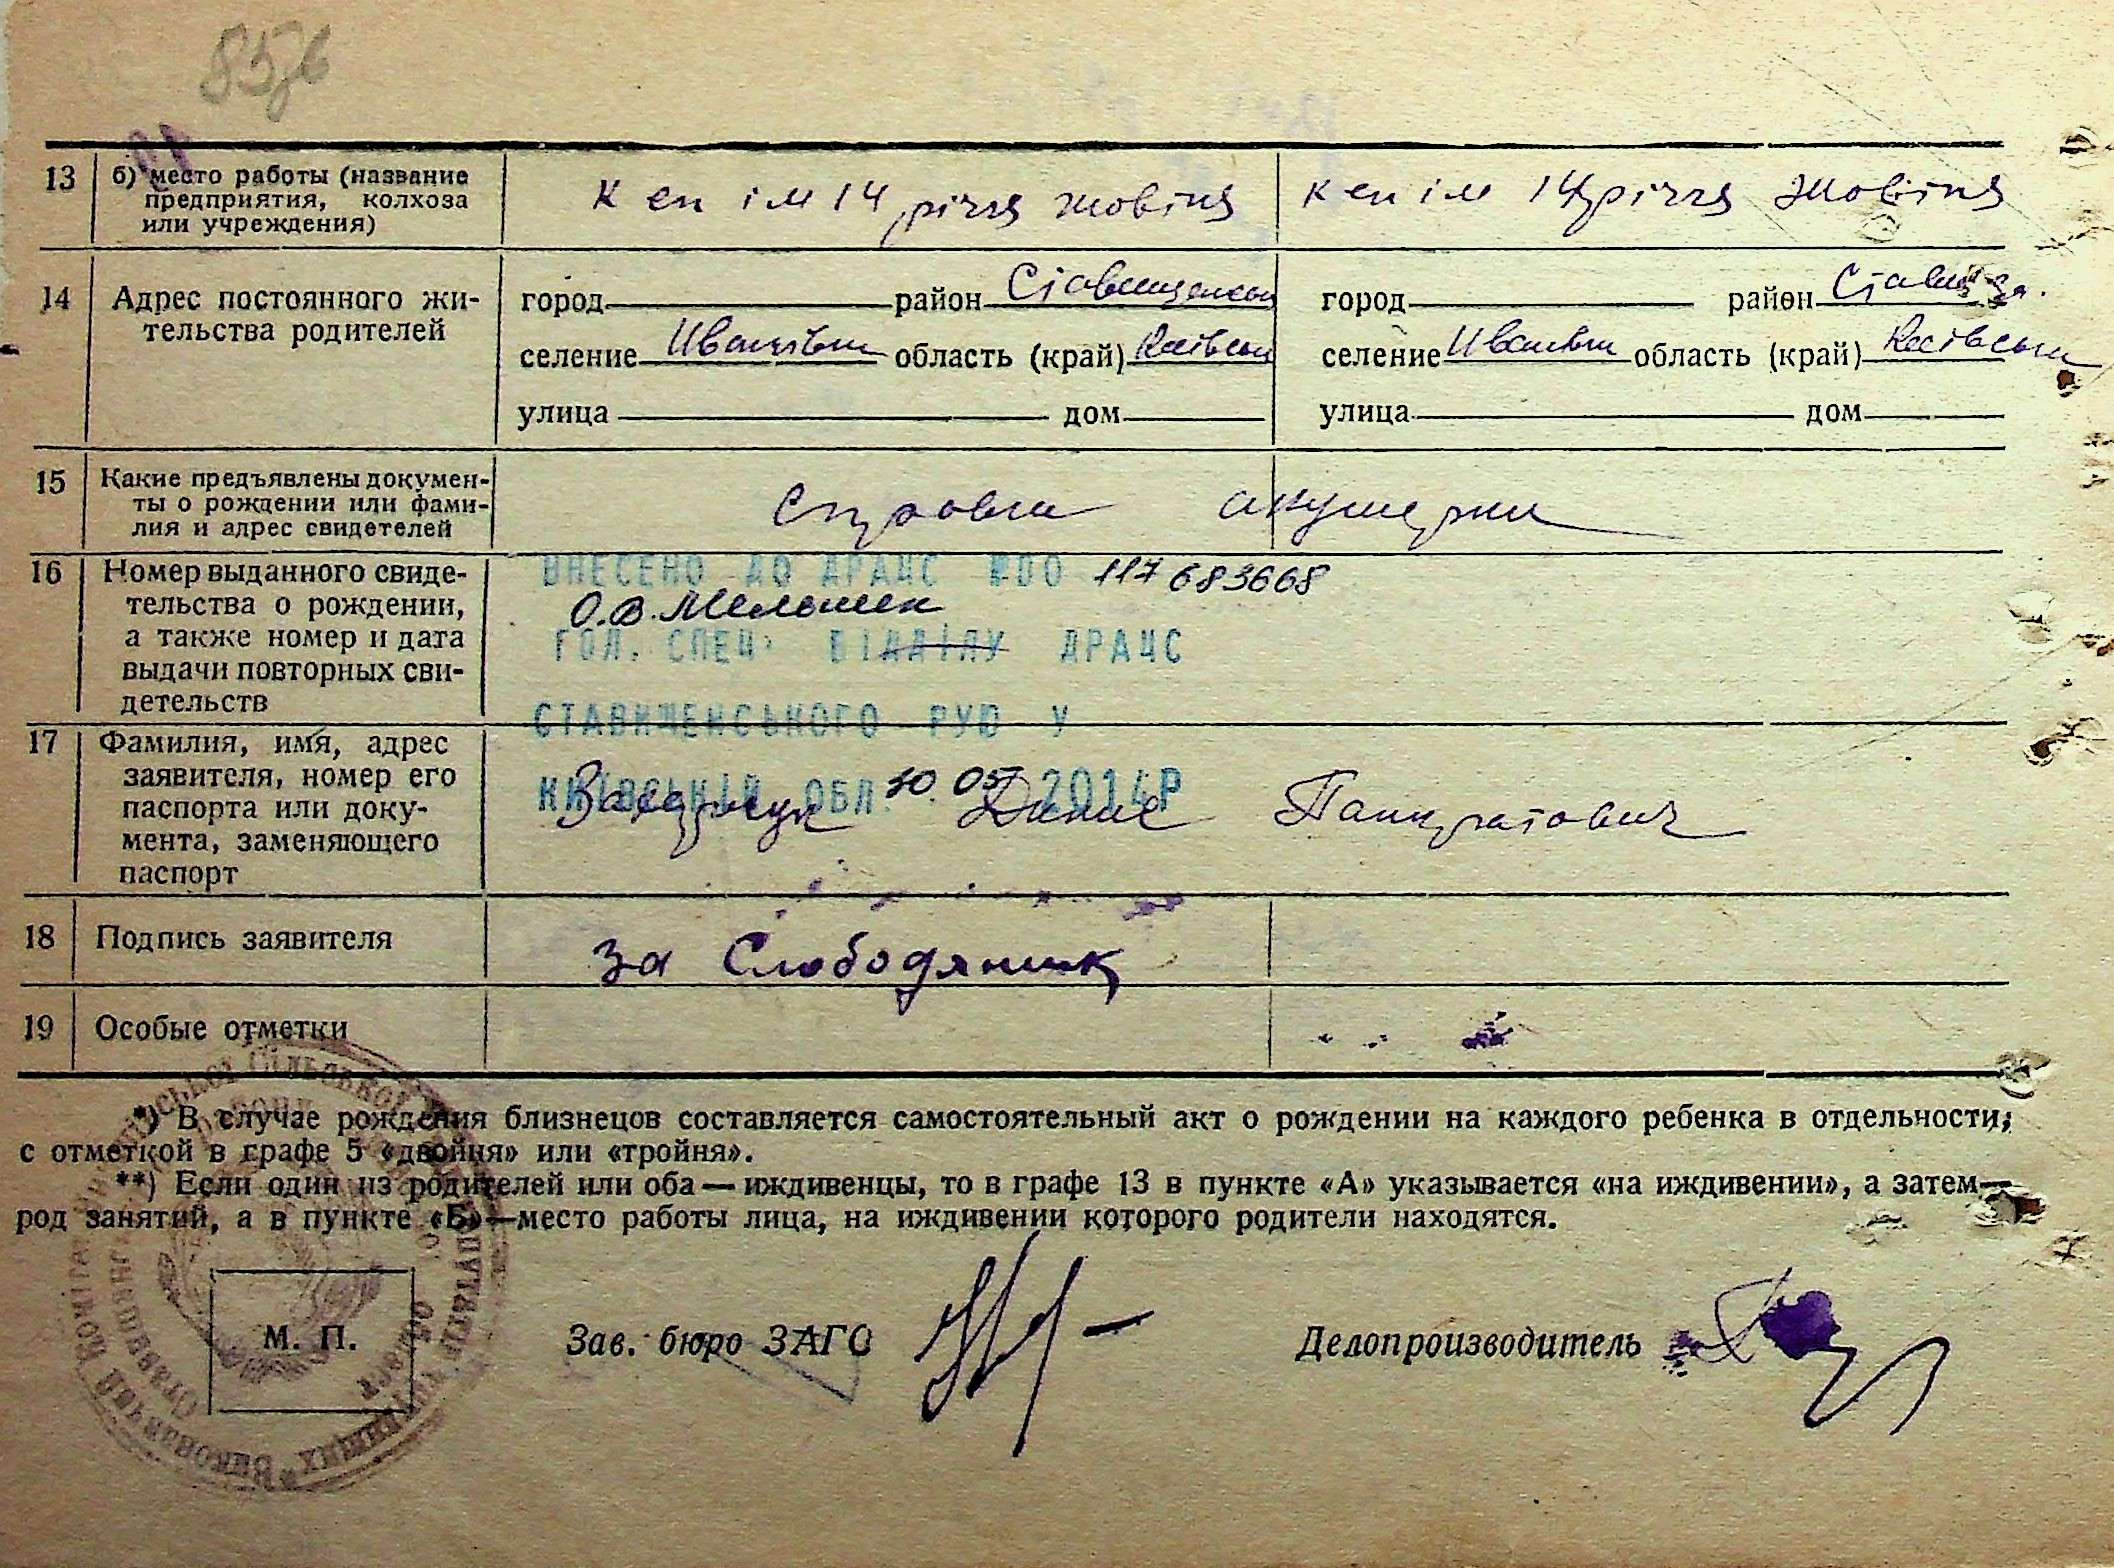 13 б) место работы (название предприятия, колхоза или учреждения)
К сп ім 14 річчя жовтня
К сп ім 14 річчя жовтня
14 Адрес постоянного жительства родителей
город район Ставищенськ
селение Іванівка область (край) Київська
улица дом
город район
селение Іванівка область (край) Київська
улица дом
15 Какие предъявлены документы о рождении или фамилия и адрес свидетелей
Справка акушерки
16 Номер выданного свидетельства о рождении, а также номер и дата выдачи повторных свидетельств
ВНЕСЕНО ДО ДРАЦС 117 683668
О.В.
ГОЛ. СПЕЦ. ВІДДІЛУ ДРАЦС
СТАВИЩЕНСЬКОГО РУЮ У
КИЇВСЬКІЙ ОБЛ. 30 05 2014Р
17 Фамилия, имя, адрес заявителя, номер его паспорта или документа, заменяющего паспорт
Панкратович
18 Подпись заявителя
за Слободяник
19 Особые отметки
*) В случае рождения близнецов составляется самостоятельный акт о рождении на каждого ребенка в отдельности,
с отметкой в графе 5 «двойня» или «тройня».
**) Если один из родителей или оба — иждивенцы, то в графе 13 в пункте «А» указывается «на иждивении», а затем—
род занятий, а в пункте «Б»—место работы лица, на иждивении которого родители находятся.
М. П.
Зав. бюро ЗАГС
Делопроизводитель